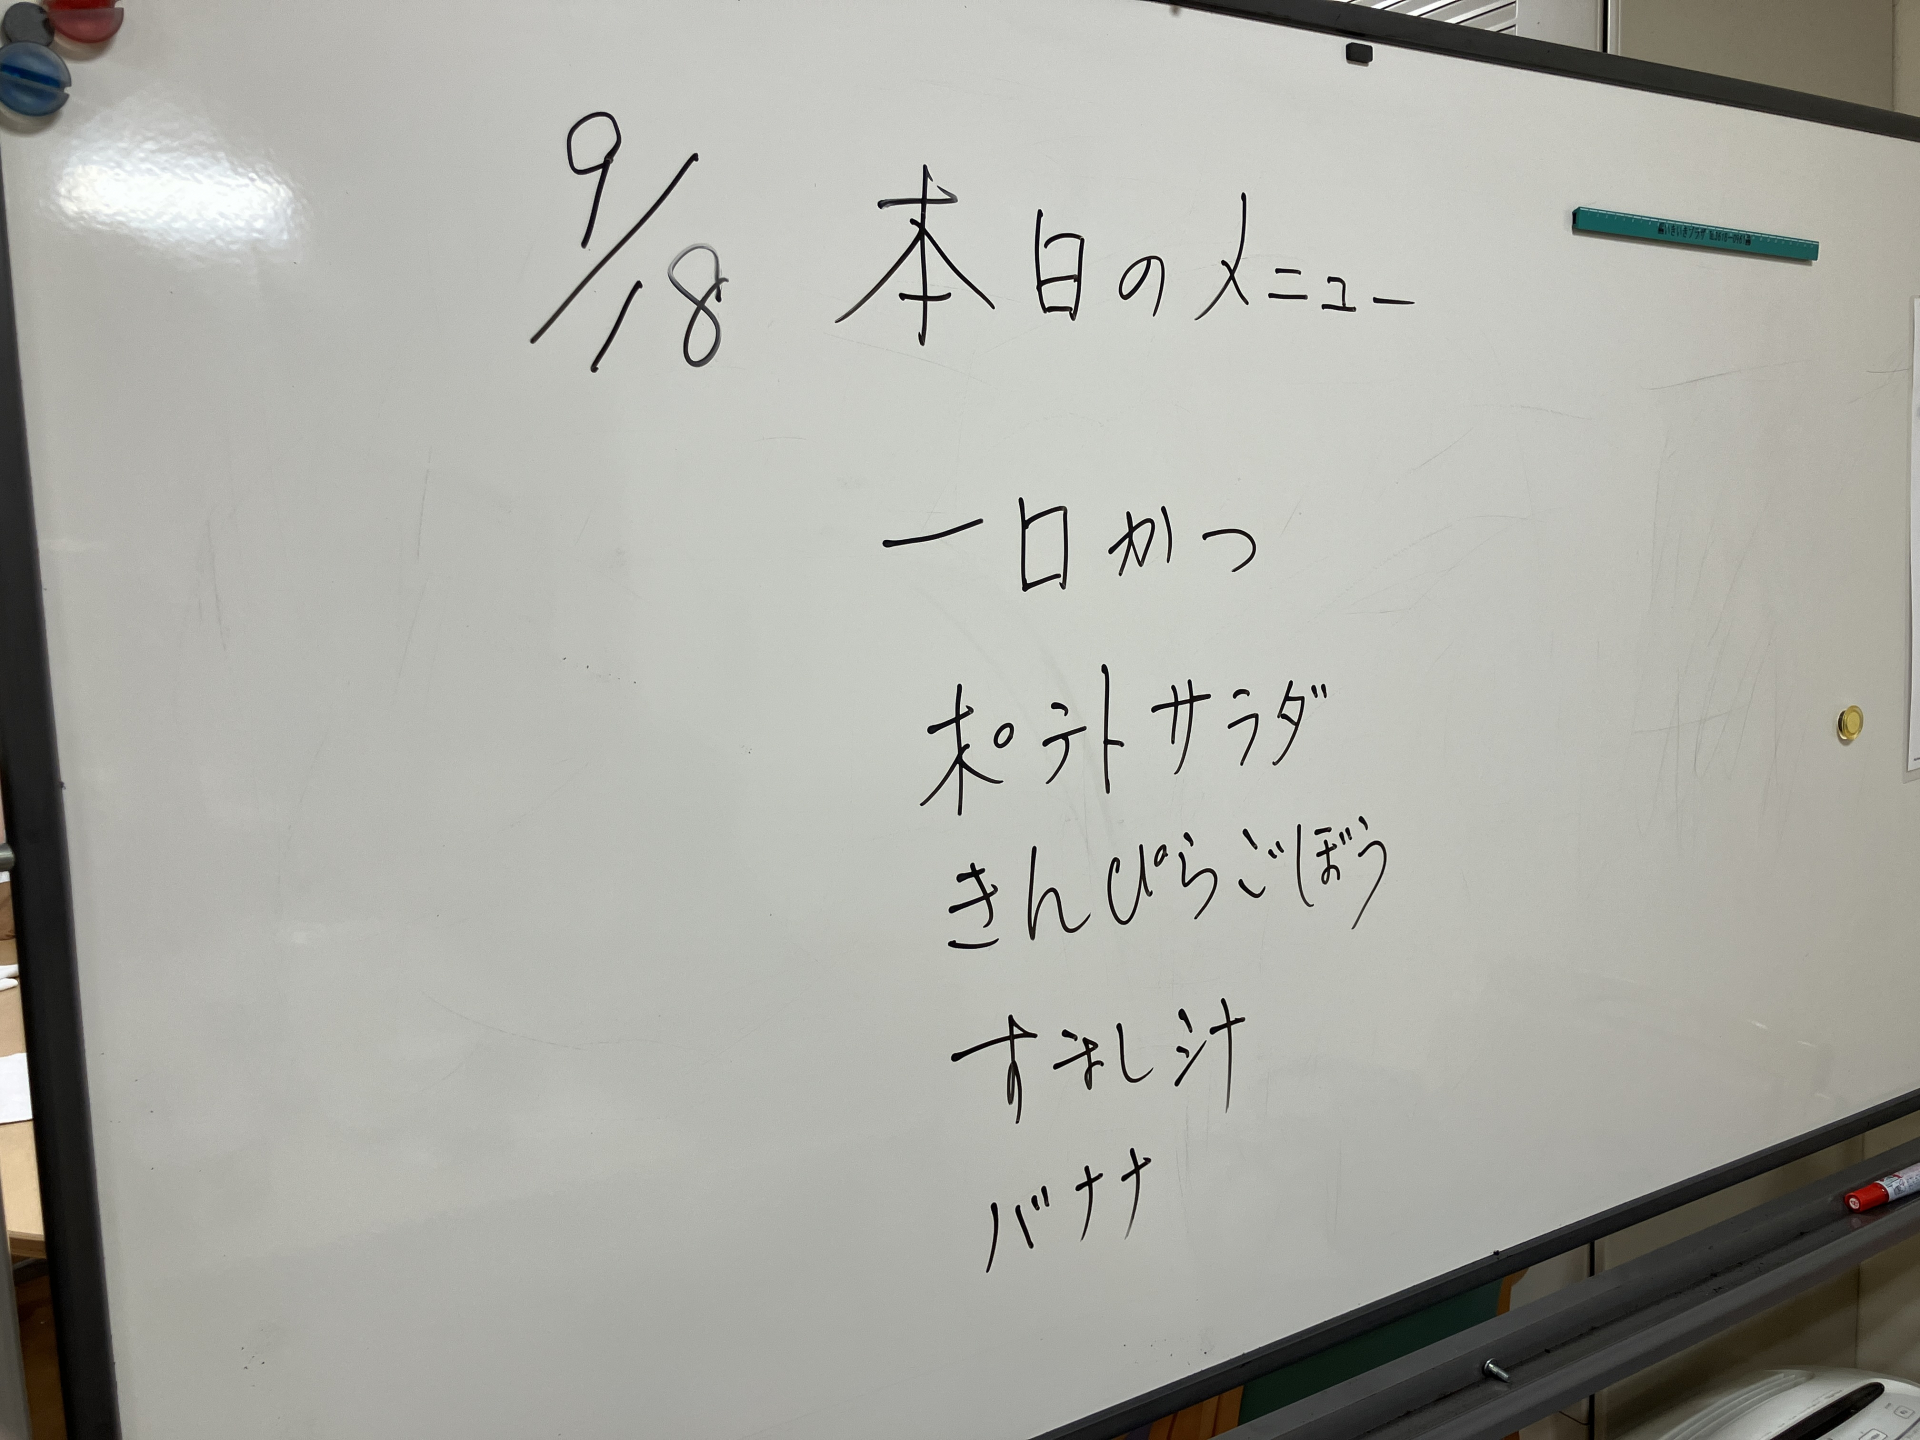 9/18 本日のメニュー
一口かつ
ポテトサラダ
きんぴらごぼう
すまし汁
バナナ